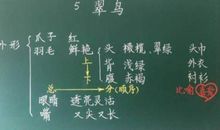 5 翠鸟
爪子 红
外形 羽毛 鲜艳 头 橄榄,翠绿 头巾
上 背 浅绿 外衣
下 腹 赤褐 衬衫
总 → 分(顺序) 比喻
眼睛 透亮灵活
嘴 又尖又长